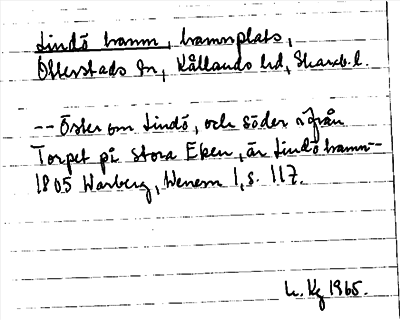 Lindö hamn, hamnplats,
Otterstads sn, Kållands hd, Skarab. l.
-- Öster om Lindö, och söder ifrån
Torpet på Stora Eken, är Lindö hamn --
1805 Warberg, Wenern 1, s. 117.
1965.